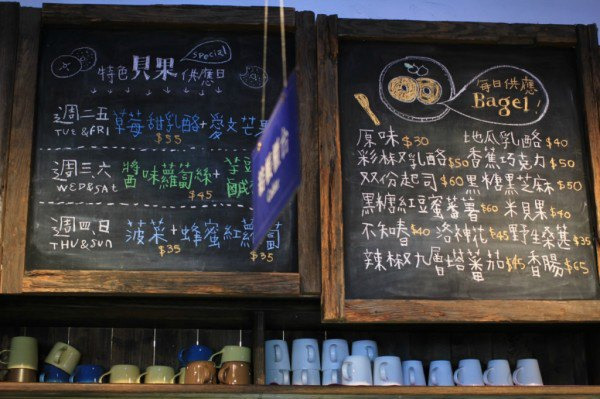 special
特色貝果供應日
週二五
TUE & FRI
草莓甜乳酪+愛文芒果
$55
週三六
WED & SAT
醬味蘿蔔絲+芋頭
$45
鹹
週四日
THU & SUN
菠菜+蜂蜜紅蘿蔔
$35
$35
每日供應
Bagel!
原味 $30 地瓜乳酪 $40
彩椒乳酪 $50 香蕉巧克力 $50
双份起司 $60 黑糖黑芝麻 $50
黑糖紅豆蜜蕃薯 $60 米貝果 $40
不知春 $40 洛神花 $45 野生桑葚 $35
辣椒九層塔蕃茄 $45 香腸 $65